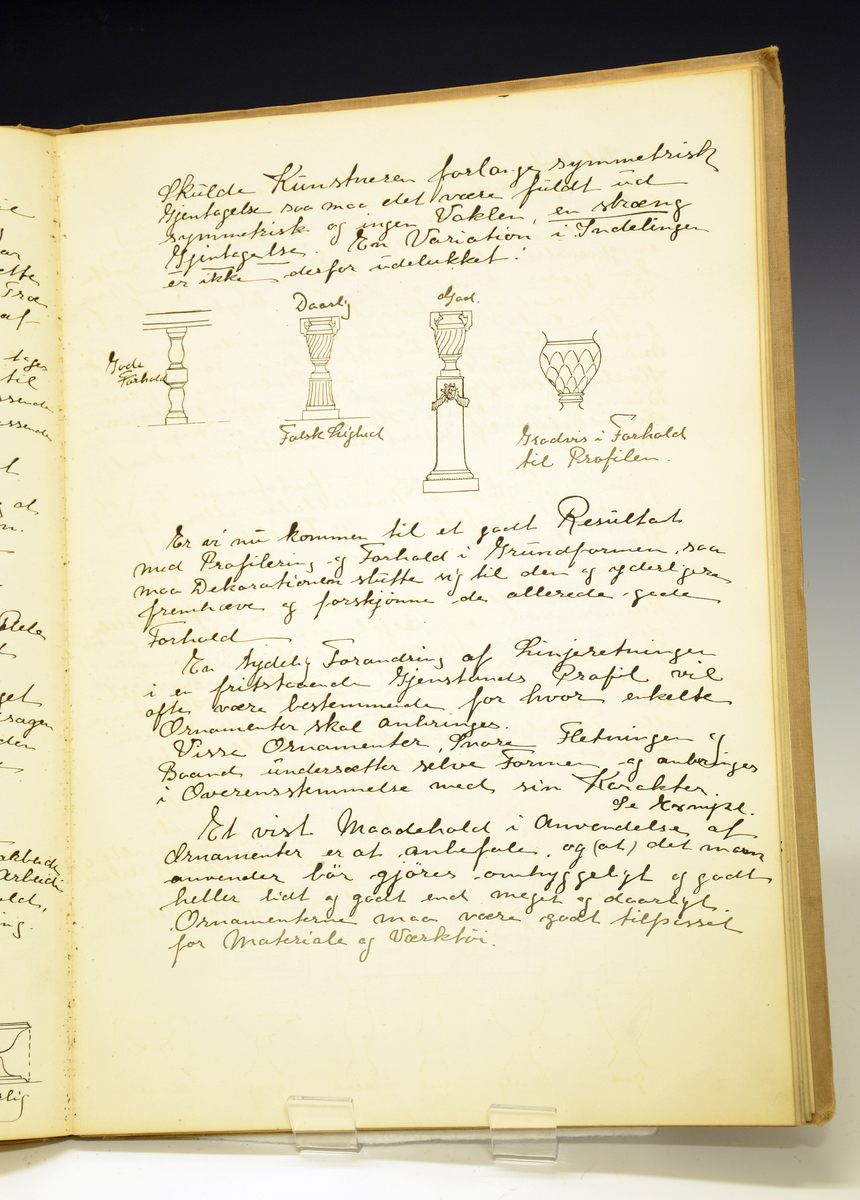 Skulde Kunstneren forlange symmetrisk
Gjentagelse saa maa det være fuldt ud
symmetrisk og ingen Vaklen, en stræng
Gjentagelse. En Variation i Indelingen
er ikke derfor udelukket.
Gode
Forhold
Daarlig
Falsk Lighed
God.
Gradvis i Forhold
til Profilen.
Er vi nu kommen til et godt Resultat
med Profilering og Forhold i Grundformen, saa
maa Dekorationen støtte sig til den og yderligere
fremhæve og forskjønne de allerede gode
Forhold
En tydelig Forandring af Linjeretningen
i en fritstaaende Gjenstands Profil vil
ofte være bestemmende for hvor enkelte
Ornamenter skal anbringes.
Visse Ornamenter, Snore Fletninger og
Baand undersøtter selve Formen og anbringes
i Overensstemmelse med sin Karakter.
Se Exmpl.
Et vist Maadehold i Anvendelse af
Ornamenter er at anbefale, og (at) det man
anvender bör gjöres omhyggeligt og godt
heller lidt og godt end meget og daarligt
Ornamenterne maa være godt tilpasset
for Materiale og Værktöi.